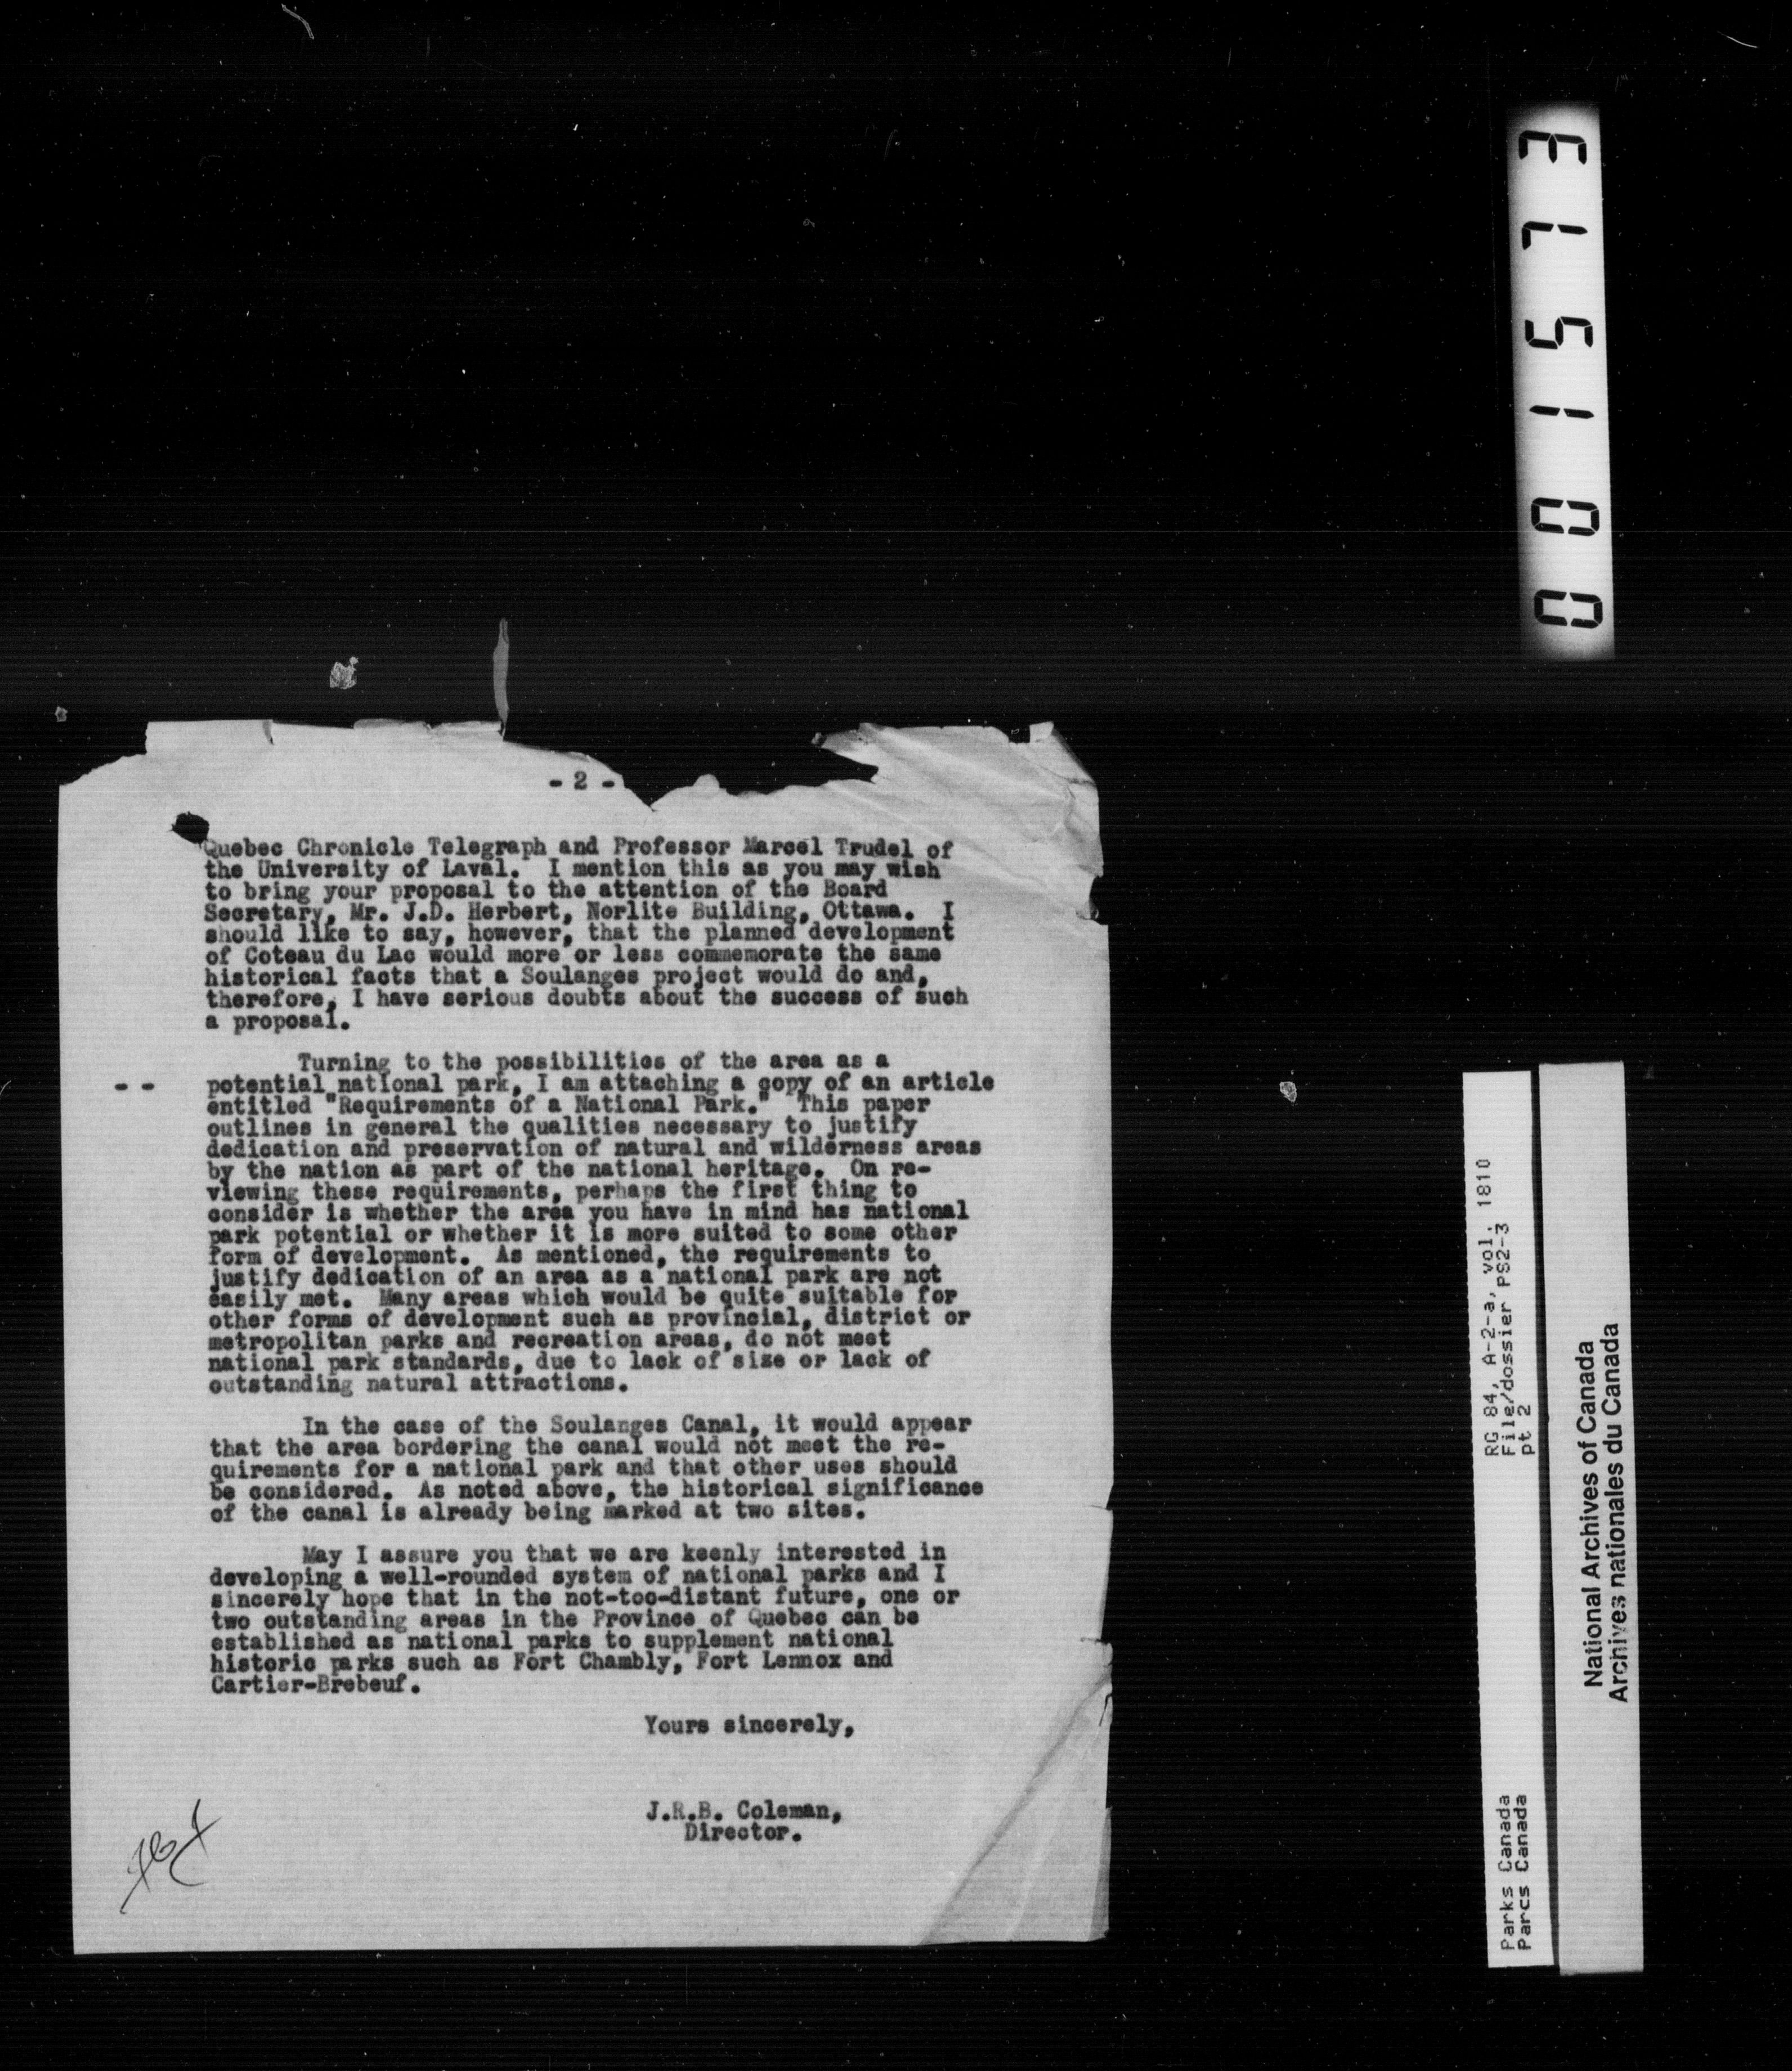 - 2 -
Quebec Chronicle Telegraph and Professor Marcel Trudel of
the University of Laval. I mention this as you may wish
to bring your proposal to the attention of the Board
Secretary, Mr. J.D. Herbert, Norlite Building, Ottawa. I
should like to say, however, that the planned development
of Coteau du Lac would more or less commemorate the same
historical facts that a Soulanges project would do and,
therefore, I have serious doubts about the success of such
a proposal.
Turning to the possibilities of the area as a
- - potential national park, I am attaching a copy of an article
entitled "Requirements of a National Park." This paper
outlines in general the qualities necessary to justify
dedication and preservation of natural and wilderness areas
by the nation as part of the national heritage. On re-
viewing these requirements, perhaps the first thing to
consider is whether the area you have in mind has national
park potential or whether it is more suited to some other
form of development. As mentioned, the requirements to
justify dedication of an area as a national park are not
easily met. Many areas which would be quite suitable for
other forms of development such as provincial, district or
metropolitan parks and recreation areas, do not meet
national park standards, due to lack of size or lack of
outstanding natural attractions.
In the case of the Soulanges Canal, it would appear
that the area bordering the canal would not meet the re-
quirements for a national park and that other uses should
be considered. As noted above, the historical significance
of the canal is already being marked at two sites.
May I assure you that we are keenly interested in
developing a well-rounded system of national parks and I
sincerely hope that in the not-too-distant future, one or
two outstanding areas in the Province of Quebec can be
established as national parks to supplement national
historic parks such as Fort Chambly, Fort Lennox and
Cartier-Brebeuf.
Yours sincerely,
J.R.B. Coleman,
Director.
001573
Parks Canada
Parcs Canada
RG 84, A-2-a, vol. 1810
File/dossier PS2-3
pt 2
National Archives of Canada
Archives nationales du Canada